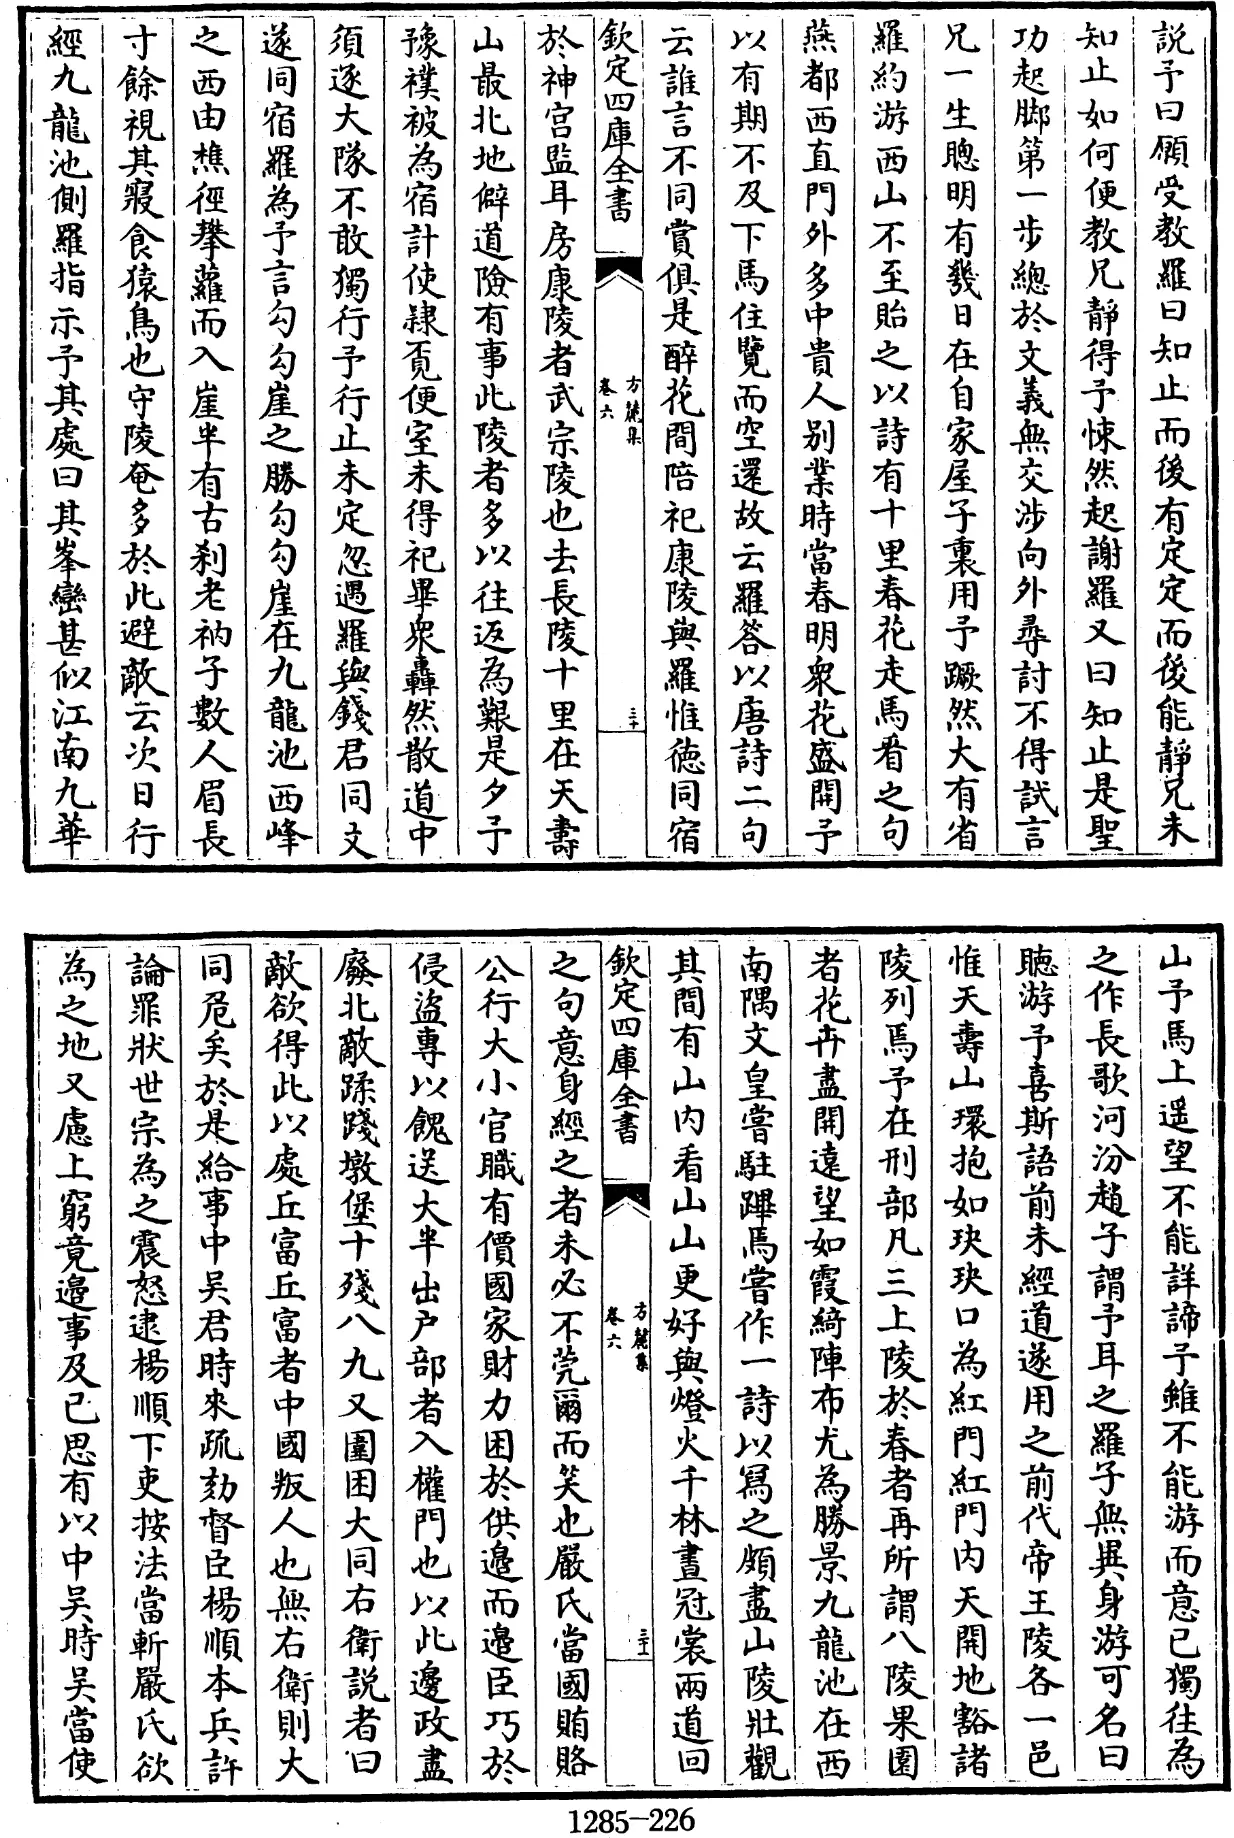 説予曰願受教羅曰知止而後有定定而後能靜兄未
知止如何便教兄靜得予悚然起謝羅又曰知止是聖
功起脚第一步總於文義無交涉向外尋討不得試言
兄一生聰明有幾日在自家屋子裏用予蹶然大有省
羅約游西山不至貽之以詩有十里春花走馬看之句
燕都西直門外多中貴人别業時當春明衆花盛開予
以有期不及下馬住覽而空還故云羅答以唐詩二句
云誰言不同賞俱是醉花間陪祀康陵與羅惟徳同宿
欽定四庫全書
方麓集
卷六
三十
於神宫監耳房康陵者武宗陵也去長陵十里在天壽
山最北地僻道險有事此陵者多以往返為艱是夕予
豫襆被為宿計使隸覔便室未得祀畢衆轟然散道中
須逐大隊不敢獨行予行止未定忽遇羅與錢君同文
遂同宿羅為予言勾勾崖之勝勾勾崖在九龍池西峰
之西由樵徑攀蘿而入崖半有古刹老衲子數人眉長
寸餘視其寢食猿鳥也守陵奄多於此避敵云次日行
經九龍池側羅指示予其處曰其峯巒甚似江南九華
山予馬上遥望不能詳諦予雖不能游而意已獨往為
之作長歌河汾趙子謂予耳之羅子無異身游可名曰
聽游予喜斯語前未經道遂用之前代帝王陵各一邑
惟天壽山環抱如玦玦口為紅門紅門内天開地豁諸
陵列焉予在刑部凡三上陵於春者再所謂八陵果園
者花卉盡開遠望如霞綺陣布尤為勝景九龍池在西
南隅文皇嘗駐蹕焉嘗作一詩以寫之頗盡山陵壯觀
其間有山内看山山更好與燈火千林晝冠裳兩道回
欽定四庫全書
方麓集
卷六
三十一
之句意身經之者未必不莞爾而笑也嚴氏當國賄賂
公行大小官職有價國家財力困於供邉而邉臣巧於
侵盗專以餽送大半出户部者入權門也以此邊政盡
廢北敵蹂踐墩堡十殘八九又圍困大同右衛説者曰
敵欲得此以處丘富丘富者中國叛人也無右衛則大
同危矣於是給事中吴君時來疏劾督臣楊順本兵許
論罪狀世宗為之震怒逮楊順下吏按法當斬嚴氏欲
為之地又慮上窮竟邉事及己思有以中吴時吴當使
1285-226